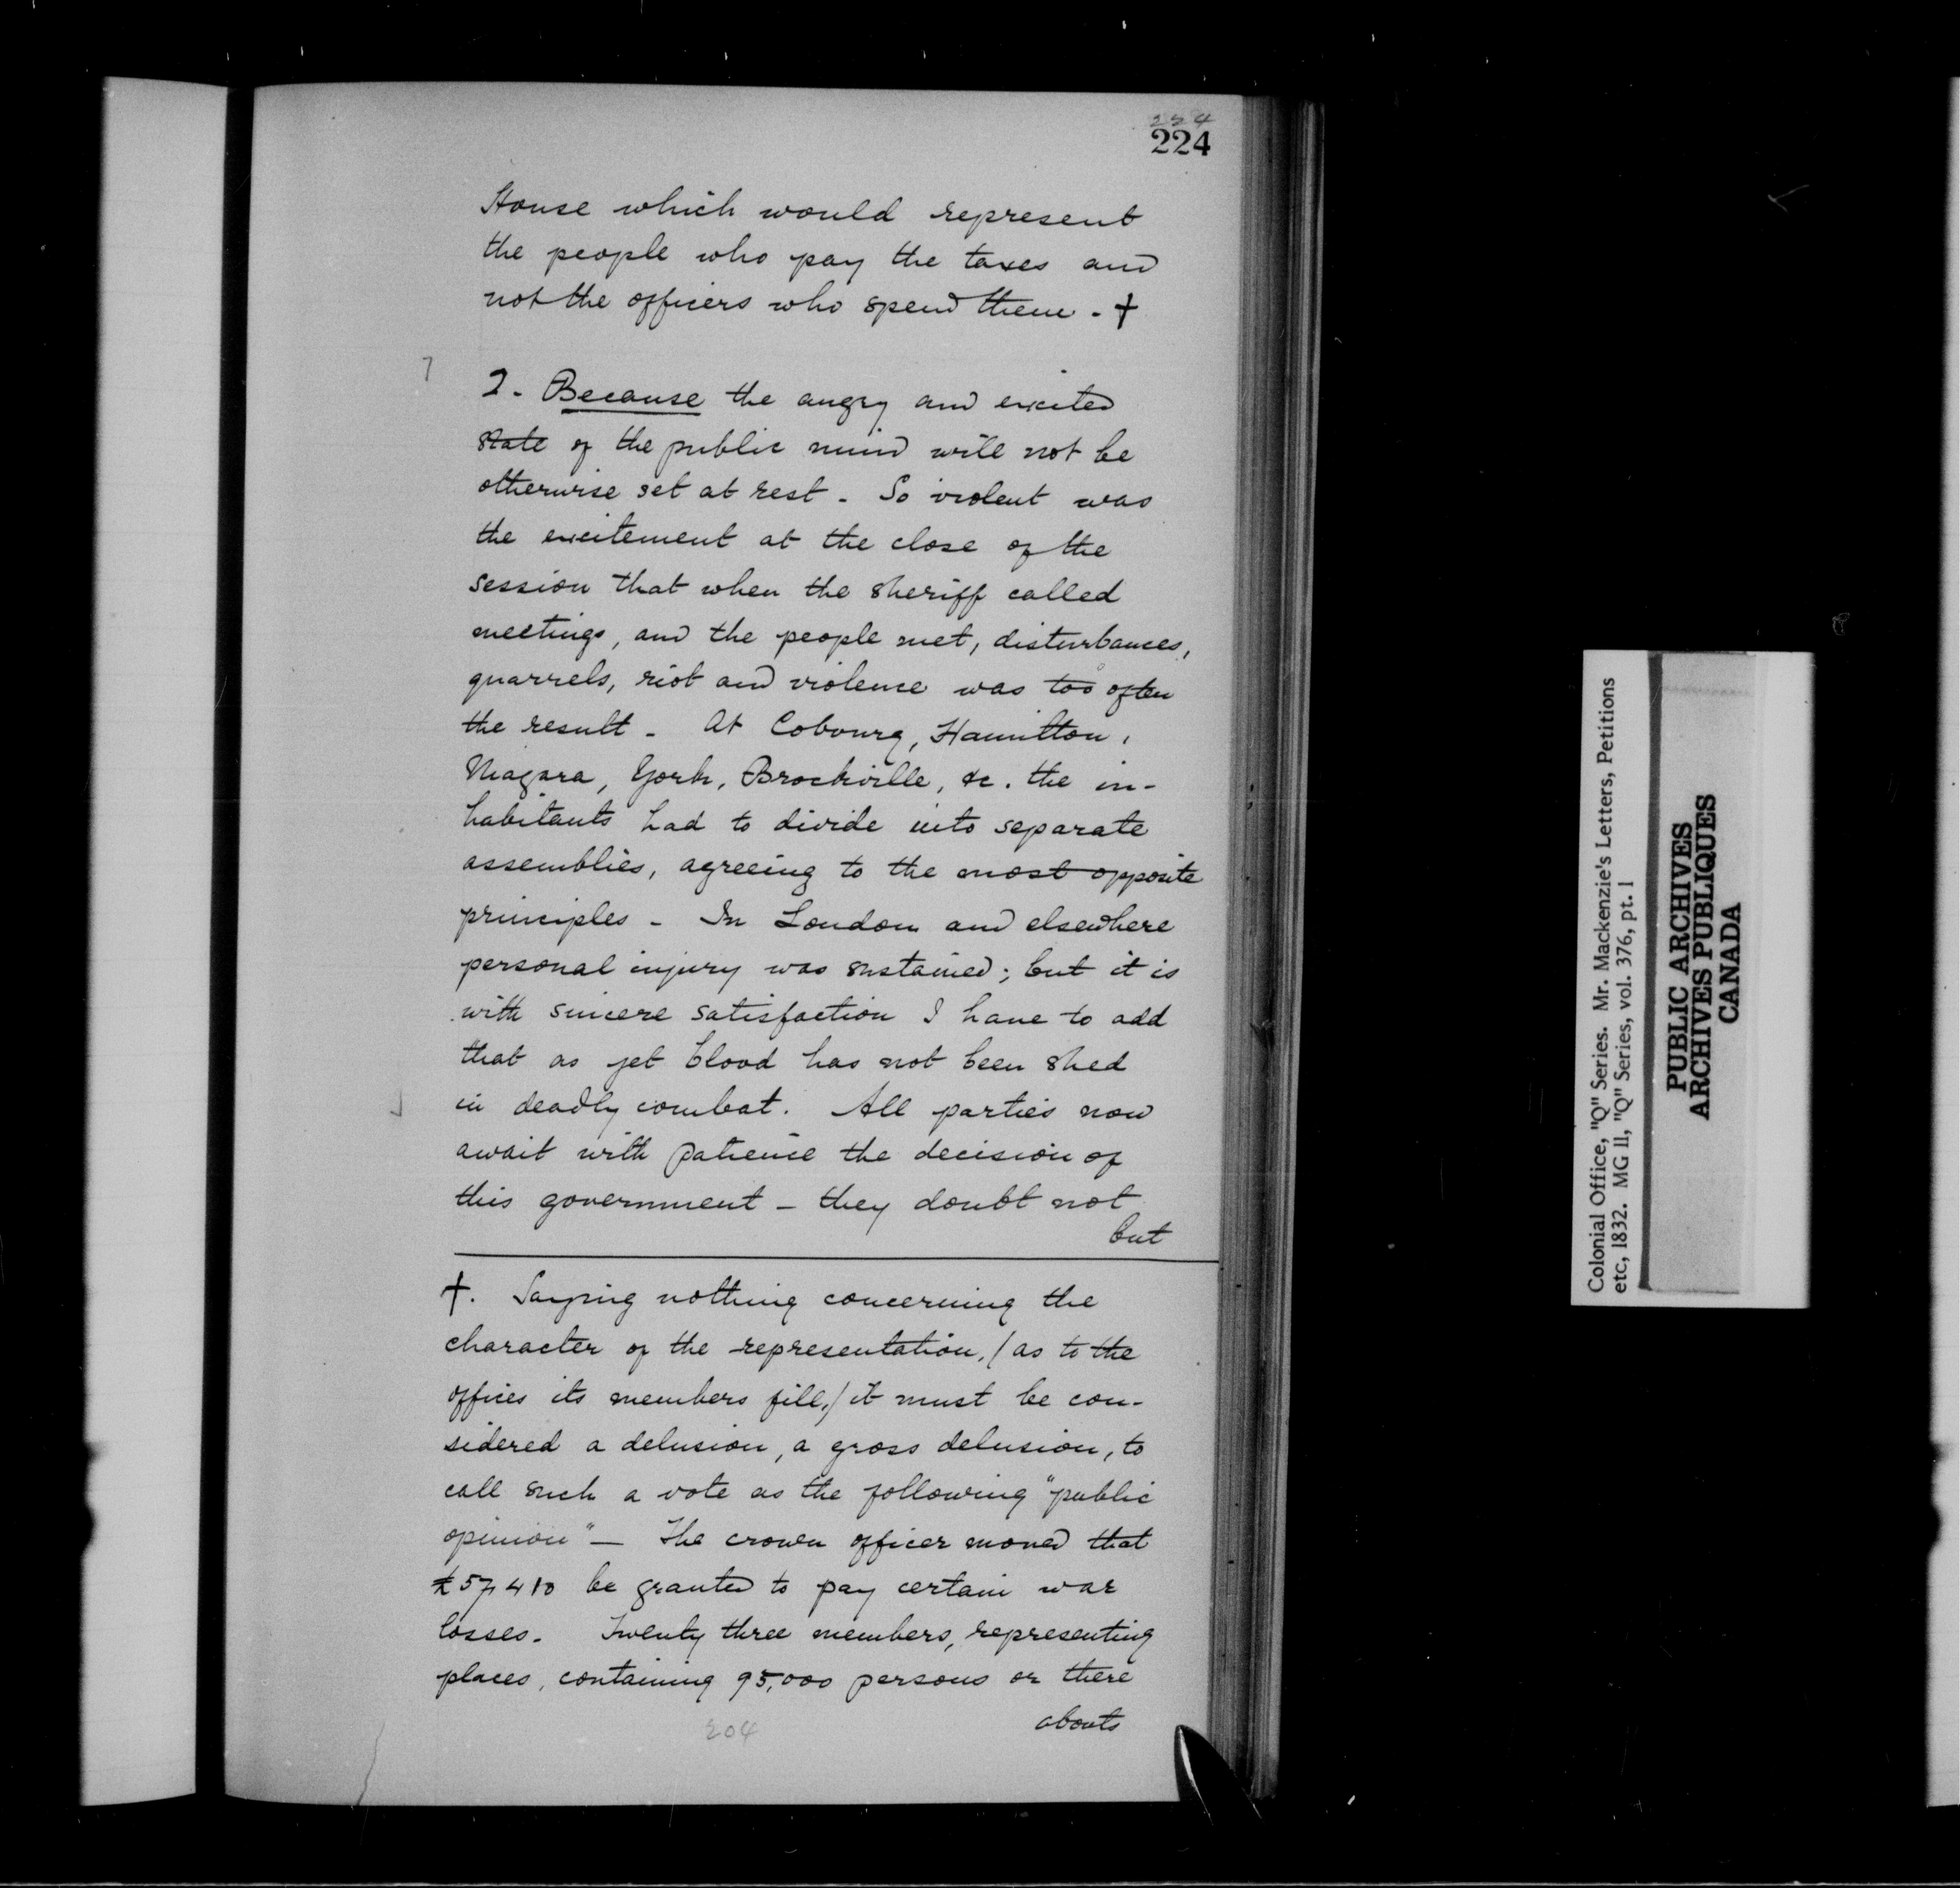 224
224
House which would represent
the people who pay the taxes and
not the officers who spend them. - †
2. Because the angry and excited
state of the public mind will not be
otherwise set at rest. So violent was
the excitement at the close of the
session that when the sheriff called
meetings, and the people met, disturbances,
quarrels, riot and violence was too often
the result. At Cobourg, Hamilton,
Niagara, York, Brockville, &c. the in-
habitants had to divide into separate
assemblies, agreeing to the most opposite
principles - In London and elsewhere
personal injury was sustained; but it is
with sincere satisfaction I have to add
that as yet blood has not been shed
in deadly combat. All parties now
await with patience the decision of
this government - they doubt not
but
†. Saying nothing concerning the
character of the representation, (as to the
offices its members fill,) it must be con-
sidered a delusion, a gross delusion, to
call such a vote as the following "public
opinion" — The crown officer moved that
£57,410 be granted to pay certain war
losses. Twenty three members, representing
places, containing 95,000 persons or there
abouts
204
Colonial Office, "Q" Series. Mr. Mackenzie's Letters, Petitions
etc, 1832. MG 11, "Q" Series, vol. 376, pt. 1
PUBLIC ARCHIVES
ARCHIVES PUBLIQUES
CANADA